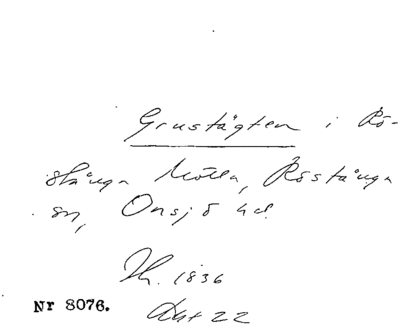 Grustägten i Rö-
stånga Mölla, Röstånga
sn, Onsjö hd.
Th. 1836
Nr 8076.